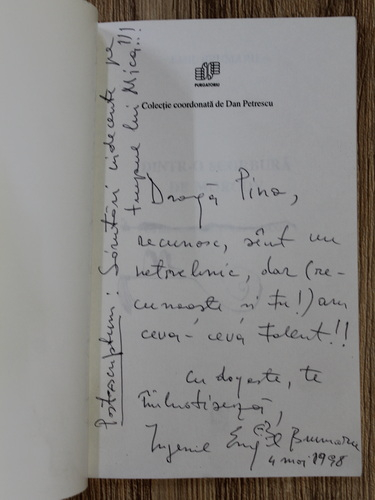 PURGATORIU
Colecţie coordonată de Dan Petrescu
Dragă Pino,
recunosc, sînt un
netrebnic, dar (re-
cunoaște și tu!) am
ceva-ceva talent!!
cu dogoste, te
îmbrățișează,
4 mai 1998
Postscriptum: Sărutări indecente pe
trupul lui Mica!!!